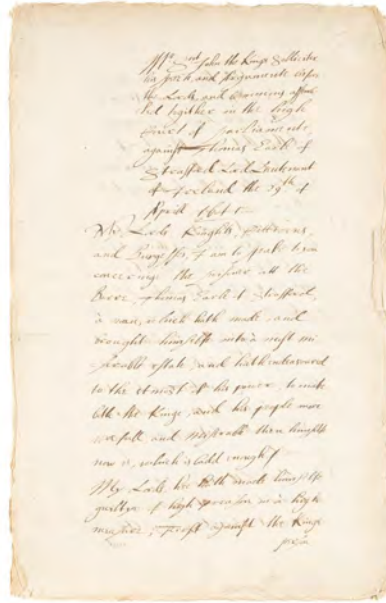 Mr Snt John the Kings Sollicitor
his speech, and Arguments before
the Lords, and Commons assem
bled together in the high
Court of parliamente,
against Thomas Earle of
Strafford Lord Lieutenant
of Ireland the 29th of
Aprill 1641
My Lords Knights, Cittizens,
and Burgesses, I am to speake to you
concerninge the prisoner att the
Barre, Thomas Earle of Strafford,
a man, which hath made and
brought himselfe into a most mi
serable estate, and hath endeavoured
to the utmost of his power, to make
both the Kinge, and his people more
wofull and miserable then himselfe
now is, which is badd enough
My Lords hee hath made himselfe
guiltye of high treason in a high
measure, first against the Kings